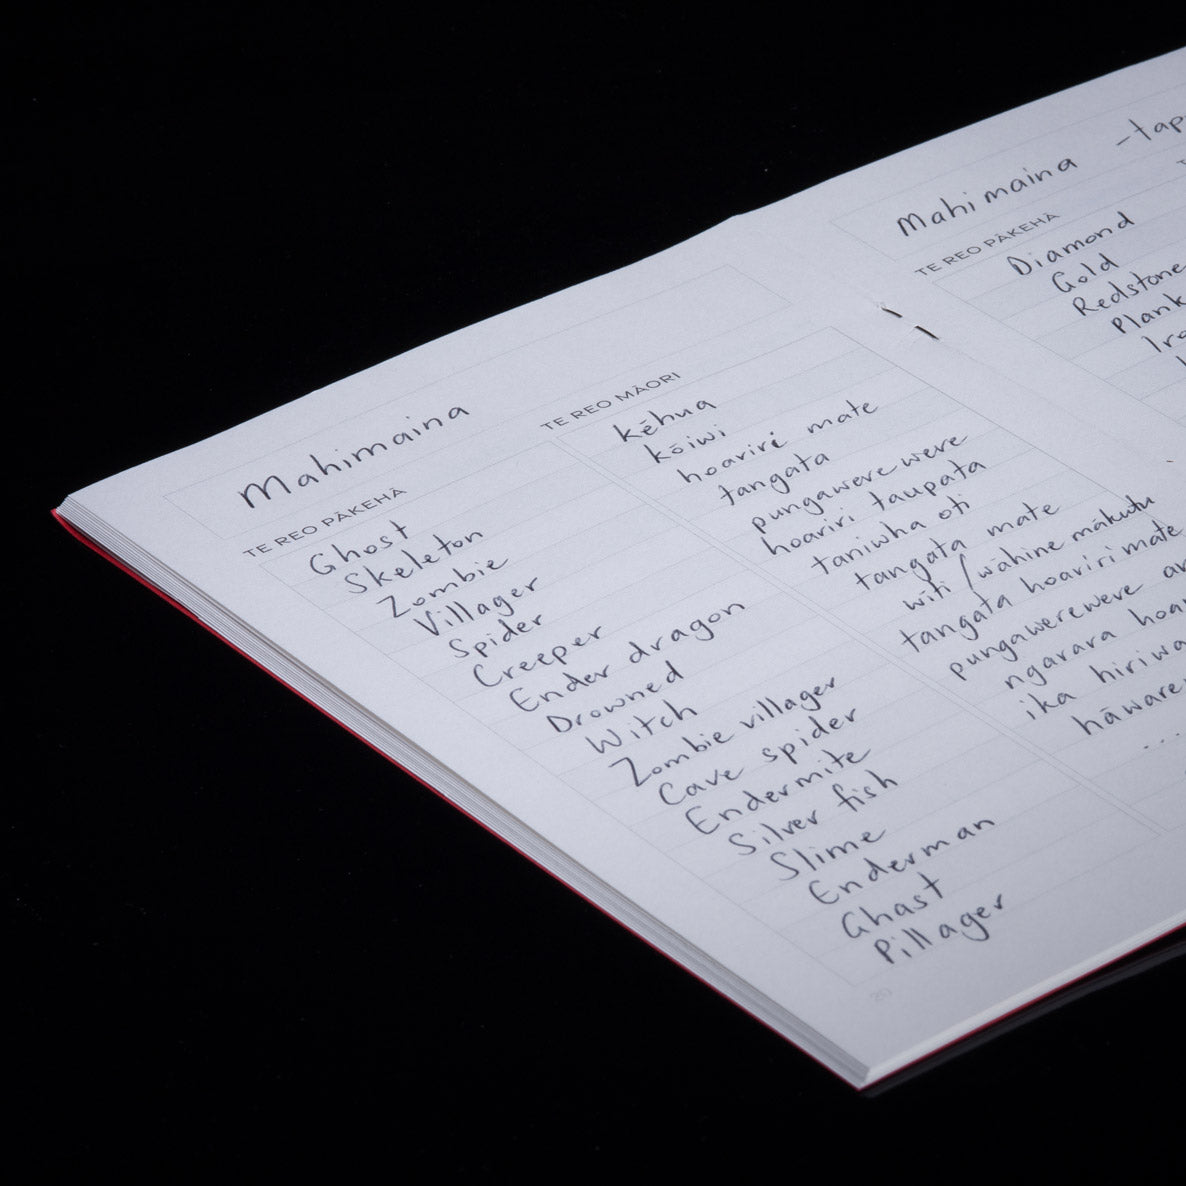 Mahimaina
TE REO PĀKEHĀ
TE REO MĀORI
Ghost
kēhua
Skeleton
kōiwi
Zombie
hoariri mate
Villager
tangata
Spider
pungawerewere
Creeper
hoariri taupata
Ender dragon
taniwha oti
Drowned
tangata mate
Witch
witi / wahine mākutu
Zombie villager
tangata hoariri mate
Cave spider
pungawerewere
Endermite
ngarara
Silver fish
ika
Slime
Enderman
...
Ghast
Pillager
20
Mahimaina
TE REO PĀKEHĀ
Diamond
Gold
Redstone